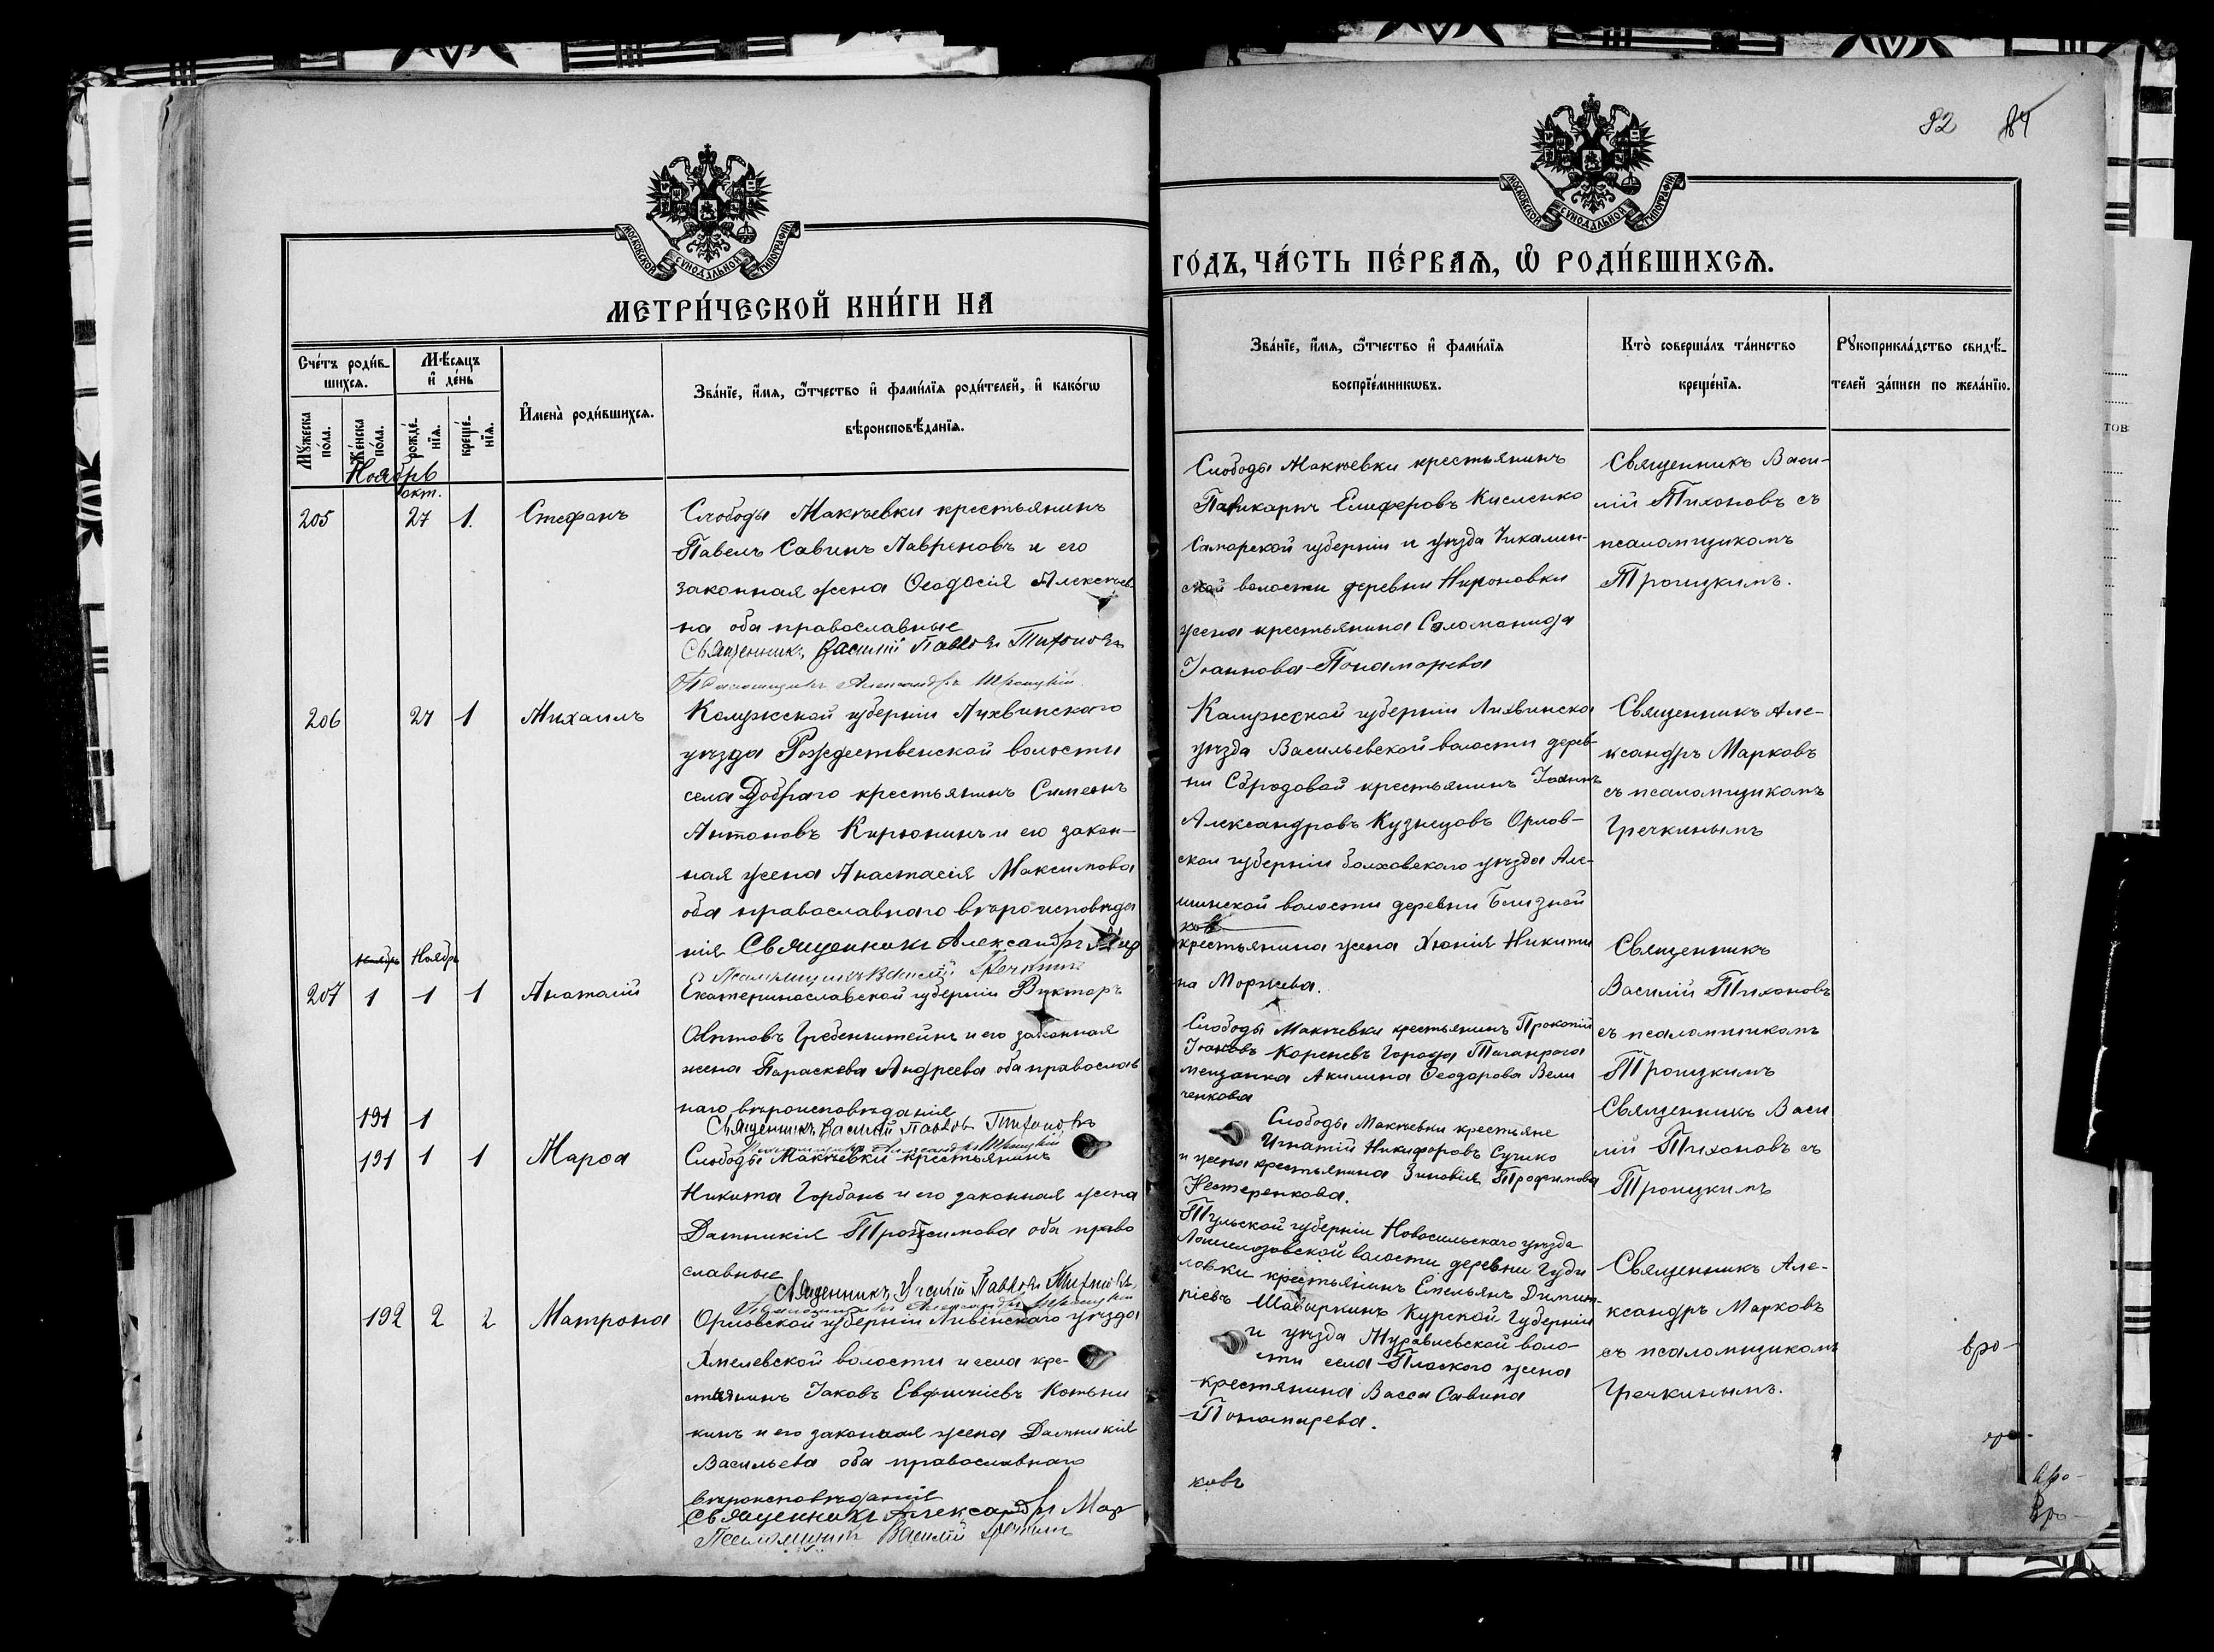 МОСКОВСКОЙ СУНОДАЛЬНОЙ ТИПОГРАФІИ
МЕТРИ́ЧЕСКОЙ КНИ́ГИ НА
Сче́тъ роди́в-
шихсѧ.
Мѣ́сѧцъ
и҆ де́нь
Мꙋ́жеска
по́ла.
Же́нска
по́ла.
рожде́-
нїѧ.
креще́-
нїѧ.
И҆мена̀ роди́вшихсѧ.
Зва́нїе, и҆́мѧ, ѻ҆́тчество и҆ фами́лїѧ роди́телей, и҆ како́гѡ
вѣроисповѣ́данїѧ.
Ноябрь
окт.
205 27 1. Стефанъ
Слободы Макѣевки крестьянинъ
Павелъ Савинъ Лавреновъ и его
законная жена Ѳеодосія Алексѣев
на оба православные
Священникъ Василій Павловъ Тихоновъ
Псаломщикъ Александръ Троицкій
206 27 1 Михаилъ
Калужской губерніи Лихвинскаго
уѣзда Рождественской волости
села Добраго крестьянинъ Симеонъ
Антоновъ Кирюнинъ и его закон-
ная жена Анастасія Максимова
оба православнаго вѣроисповѣда
нія Священникъ Александръ Мар
Псаломщикъ Василій Гречкинъ
ноябрь Ноябрь
207 1 1 1 Анатолій
Екатеринославской губерніи Викторъ
Гребенштейнъ и его законная
жена Параскева Андреева оба православ
наго вѣроисповѣданія
Священникъ Василій Павловъ Тихоновъ
Псаломщикъ Александръ Троицкій
191 1
191 1 1 Марѳа
Слободы Макѣевки крестьянинъ
Никита Горбань и его законная жена
Домникія оба право
славные
Священникъ Василій Павловъ Тихоновъ
Псаломщикъ Александръ Троицкій
192 2 2 Матрона
Орловской губерніи Ливенскаго уѣзда
Хмелевской волости и села кре-
стьянинъ Іаковъ Евфиміевъ Котьни
кинъ и его законная жена Домникія
Васильева оба православнаго
вѣроисповѣданія
Священникъ Александръ Мар
Псаломщикъ Василій Гречкинъ
82 84
МОСКОВСКОЙ СУНОДАЛЬНОЙ ТИПОГРАФІИ
ГО́ДЪ, ЧА́СТЬ ПЕ́РВАѦ, Ѡ҆ РОДИ́ВШИХСѦ.
Зва́нїе, и҆́мѧ, ѻ҆́тчество и҆ фами́лїѧ
воспрїе́мникѡвъ.
Кто̀ соверша́лъ та́инство
креще́нїѧ.
Рꙋкоприкла́дство свидѣ́-
телей за́писи по жела́нїю.
Слободы Макѣевки крестьянинъ
Поликарпъ Елиферовъ Кисленко
Самарской губерніи и уѣзда
ской волости деревни Нироновки
жена крестьянина Соломонида
Іоаннова Понаморева
Священникъ Васи-
лій Тихоновъ съ
псаломщикомъ
Троицкимъ.
Калужской губерніи Лихвинска
уѣзда Васильевской волости дерев-
ни Сбродовой крестьянинъ Іоаннъ
Александровъ Кузнецовъ Орлов-
ской губерніи болховскаго уѣзда Але-
шинской волости деревни Близной
ковъ
крестьянина жена Хіонія Никити
на Моржева.
Священникъ Але-
ксандръ Марковъ
съ псаломщикомъ
Гречкинымъ
Слободы Макѣевки крестьянинъ Прокопій
Іоановъ Кореневъ Города Таганрога
мещанка Акилина Ѳеодорова Вели
ченкова
Священникъ
Василій Тихоновъ
съ псаломщикомъ
Троицкимъ
Слободы Макѣевки крестьяне
Игнатій Никифоровъ Сушко
и жена крестьянина Зиновія Трофимова
Нестеренкова.
Священникъ Васи
лій Тихоновъ съ
Троицкимъ
Тульской губерніи Новосильскаго уѣзда
волости деревни Гуди
ловки крестьянинъ Емельянъ Димит-
ріевъ Шавыркинъ Курской Губерніи
и уѣзда Муравлевской воло-
сти села Плоского жена
крестянина Васса Савина
Пономарева.
ковъ
Священникъ Але-
ксандръ Марковъ
съ псаломщикомъ
Гречкинымъ.
вро-
вро-
Вро-